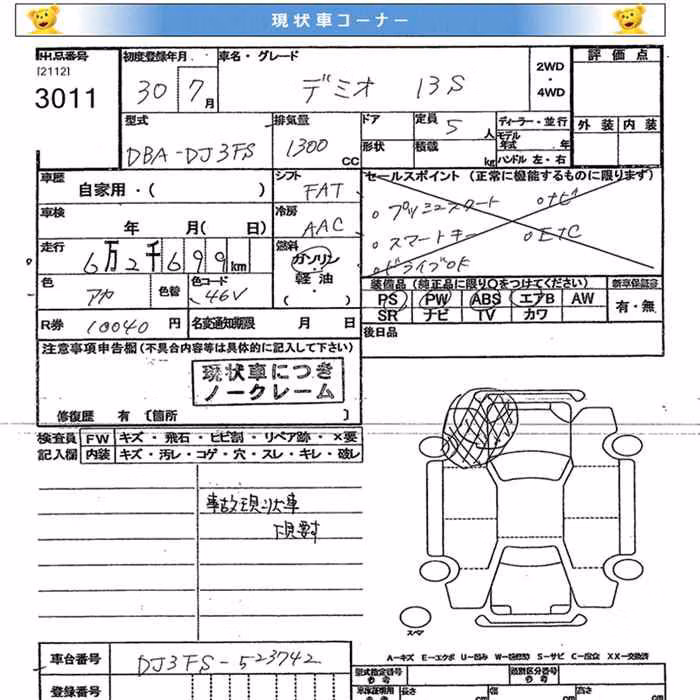 現状車コーナー
出品番号 初度登録年月 車名・グレード 2WD・4WD 評価点
[2112]
3011 30 7月 デミオ 13S
外装 内装
型式 排気量 ドア 定員 5人 ディーラー・並行
DBA-DJ3FS 1300cc 形状 積載 kg モデル年式 年
ハンドル 左・右
車歴 自家用・( ) シフト FAT セールスポイント (正常に機能するものに限ります)
車検 年 月( 日) 冷房 AAC 。プッシュスタート 。ナビ
走行 6万2千699km 燃料 ガソリン・軽油・( ) 。スマートキー 。ETC
。ドライブOK
色 アカ 色替 色コード 46V
装備品 (純正品に限り○をつけてください) 新車保証書
PS PW ABS エアB AW 有・無
SR ナビ TV カワ
R券 10040円 名変通知期限 月 日 後日品
注意事項申告欄 (不具合内容等は具体的に記入して下さい)
現状車につき
ノークレーム
修復歴 有〔箇所 〕
検査員 FW キズ・飛石・ヒビ割・リペア跡・×要
記入欄 内装 キズ・汚レ・コゲ・穴・スレ・キレ・破レ
事故現リ大車
下見要す
スペア
A-キズ E-エクボ U-凹み W-補修跡 S-サビ C-腐食 XX-交換済
車台番号 DJ3FS-523742
型式指定番号 類別区分番号
登録番号 長さ cm 幅 cm 高さ cm